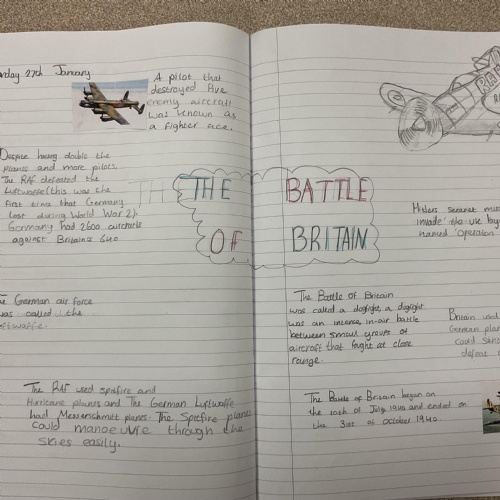 27th January
A pilot that
destroyed five
enemy aircraft
was known as
a fighter ace.
Despite having double the
planes and more pilots,
The RAF defeated the
Luftwaffe (this was the
first time that Germany
lost during World War 2).
Germany had 2600 aircrafts
against Britain's 640
THE BATTLE
OF BRITAIN
Hitlers secret
invade the uk by
named 'Operation
The German air force
was called the
Luftwaffe.
The Battle of Britain
was called a dogfight, a dogfight
was an intense in-air battle
between small groups of
aircraft that fought at close
range.
Britain used
German plan
could
defeat
The RAF used spitfire and
Hurricane planes and The German Luftwaffe
had Messerschmitt planes. The Spitfire planes
could manoeuvre through the
skies easily.
The Battle of Britain began on
the 10th of July 1940 and ended on
the 31st of October 1940.